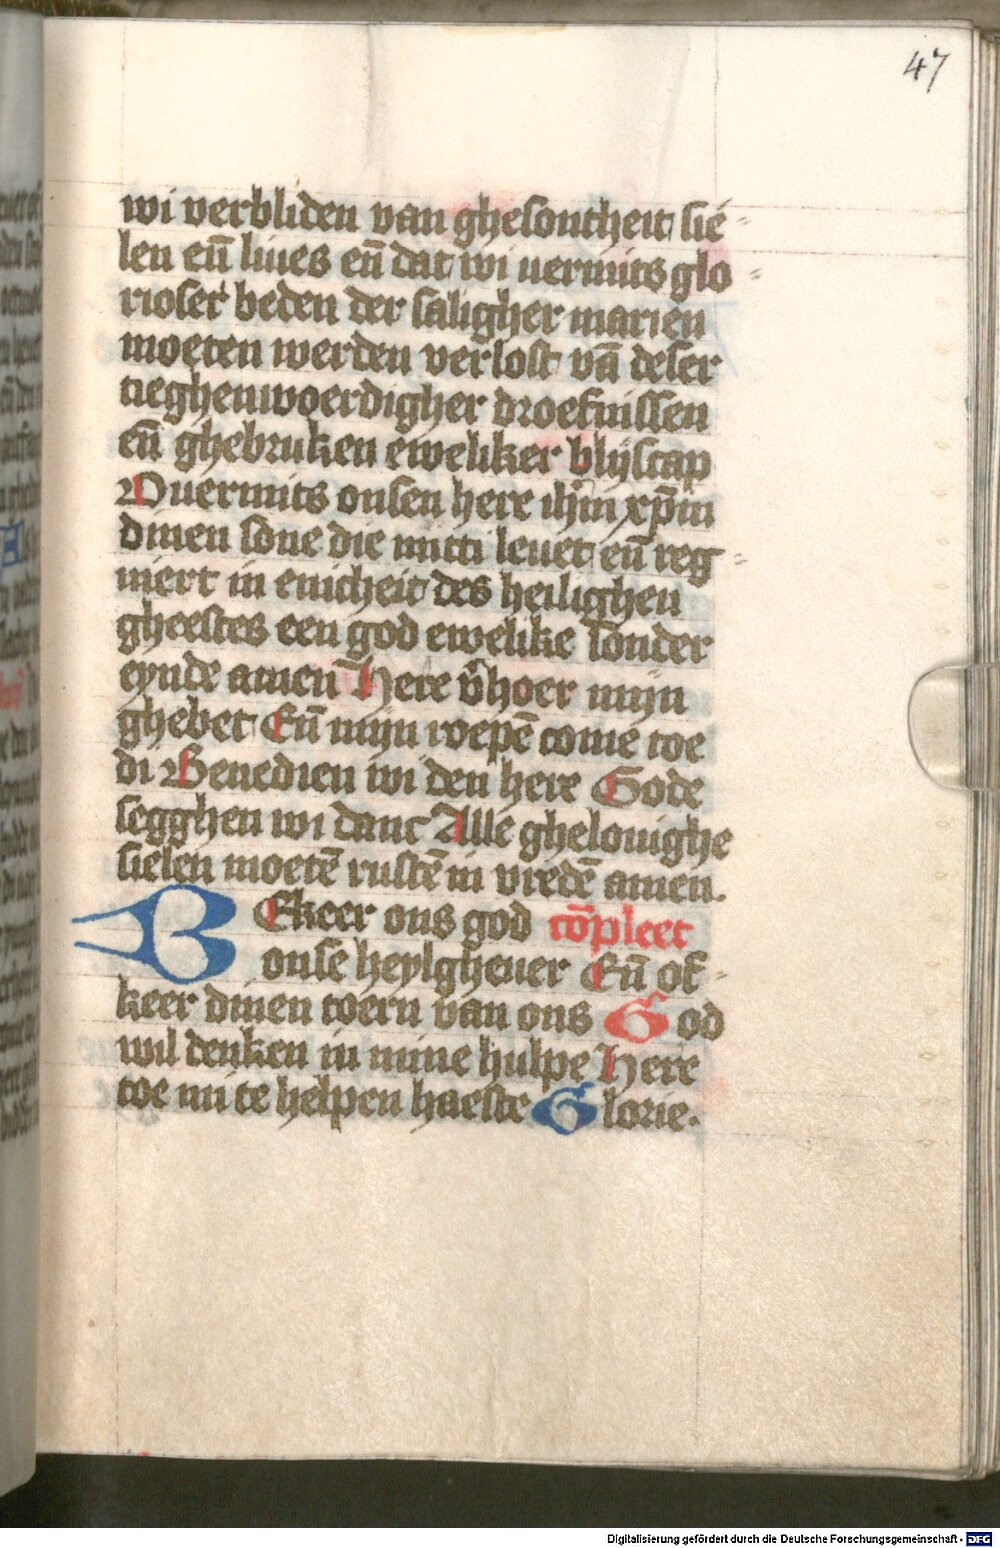 47
wi verbliden van ghesontheit sie-
len eñ liues eñ dat wi uermits glo-
rioser beden der saligher marien
moeten werden verlost vā deser
tieghenwoerdigher droefnissen
eñ ghebruken eweliker blijscap
Ouermits onsen here ihm̄ xp̄m
dinen sone die mitti leuet eñ reg-
niert in enicheit des heilighen
gheestes een god ewelike sonder
eynde amen Here v̄hoer mijn
ghebet Eñ mijn roepē come toe
di Benedien wi den here Gode
segghen wi danc Alle ghelouighe
sielen moetē rustē in vredē amen.
BEkeer ons god cōpleet
onse heylgheuer Eñ of-
keer dinen toern van ons God
wil denken in mine hulpe Here
toe mi te helpen haeste Glorie.
Digitalisierung gefördert durch die Deutsche Forschungsgemeinschaft - DFG